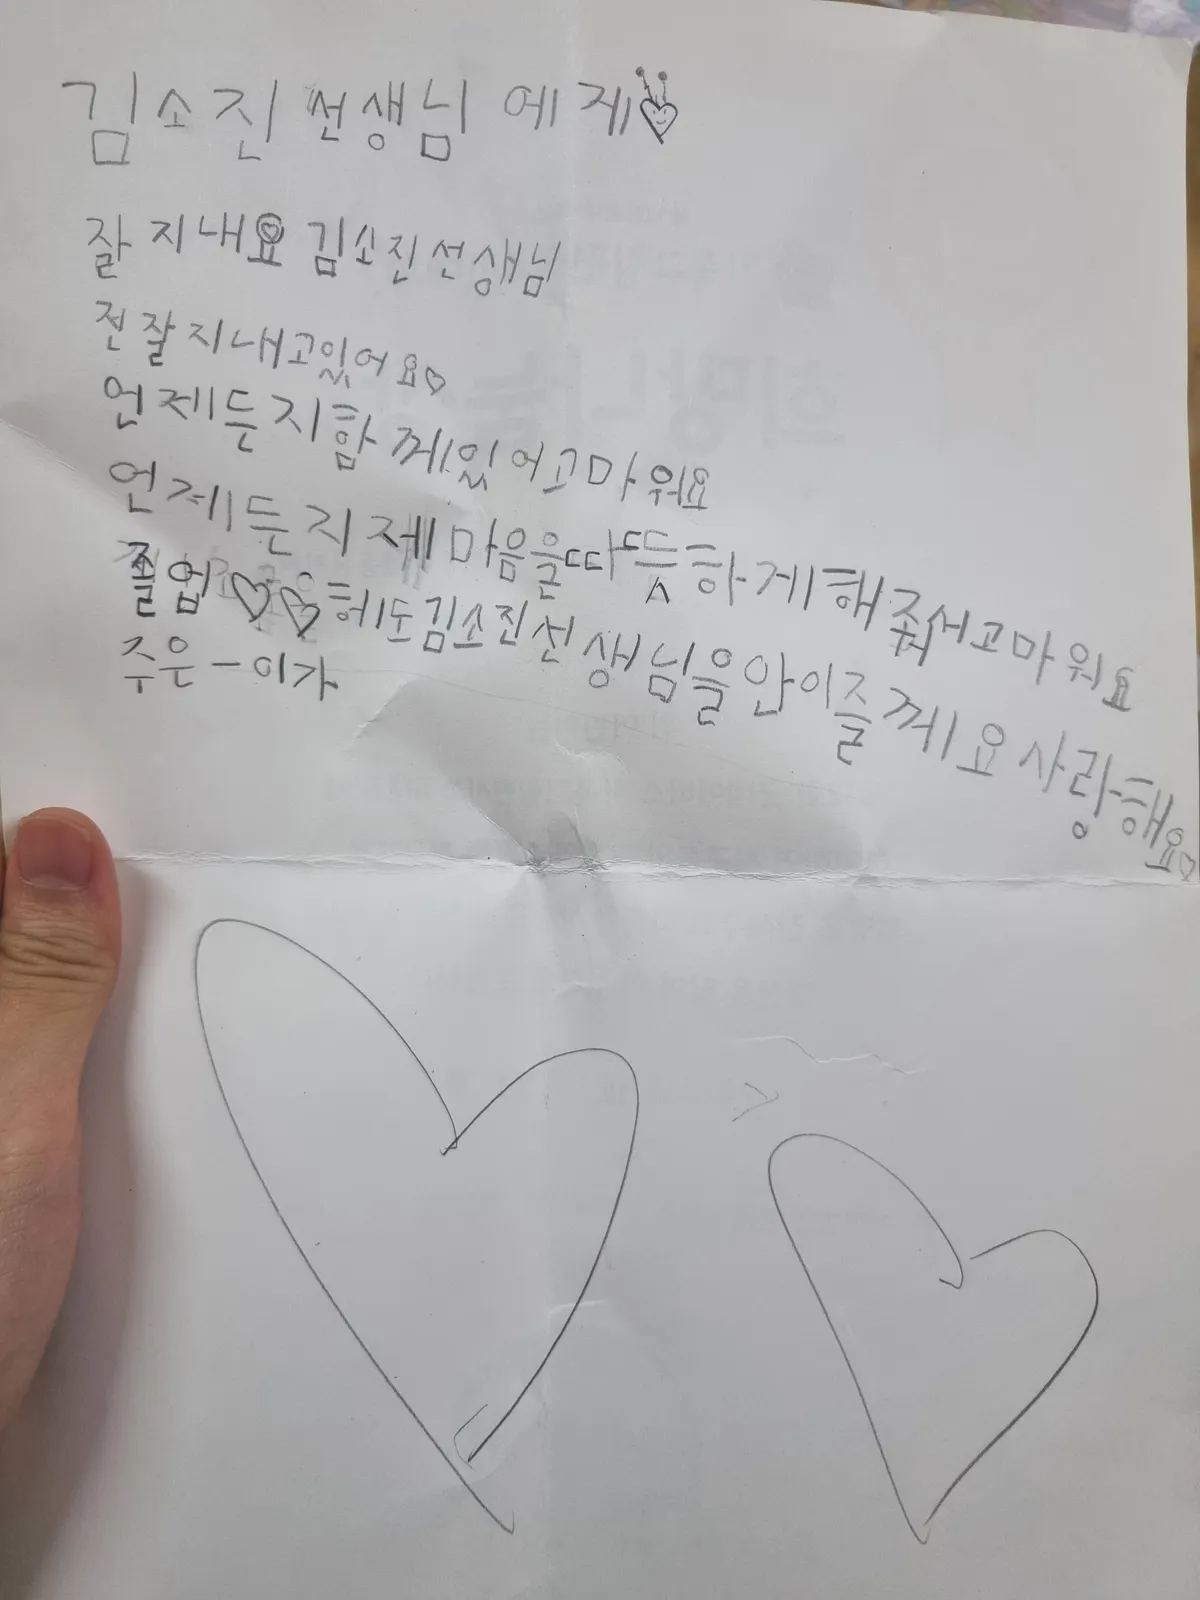 김소진선생님 에게
잘 지내요 김소진선생님
전잘지내고있어요
언제든지함께있어고마워요
언제든지 제마음을따뜻하게해줘서고마워요
졸업 헤도김소진선생님을안이즐께요사랑해요
주은-이가